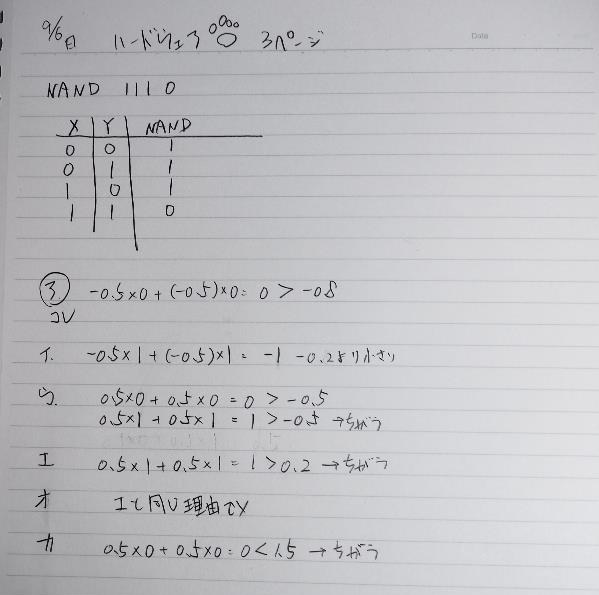 9/6日 ハードウェア 3ページ
Date
NAND 1110
X Y NAND
0 0 1
0 1 1
1 0 1
1 1 0
③ -0.5×0+(-0.5)×0=0>-0.8
コレ
イ. -0.5×1+(-0.5)×1=-1 -0.2より小さい
ウ. 0.5×0+0.5×0=0>-0.5
0.5×1+0.5×1=1>-0.5→ちがう
エ 0.5×1+0.5×1=1>0.2→ちがう
オ エと同じ理由で×
カ 0.5×0+0.5×0=0<1.5→ちがう